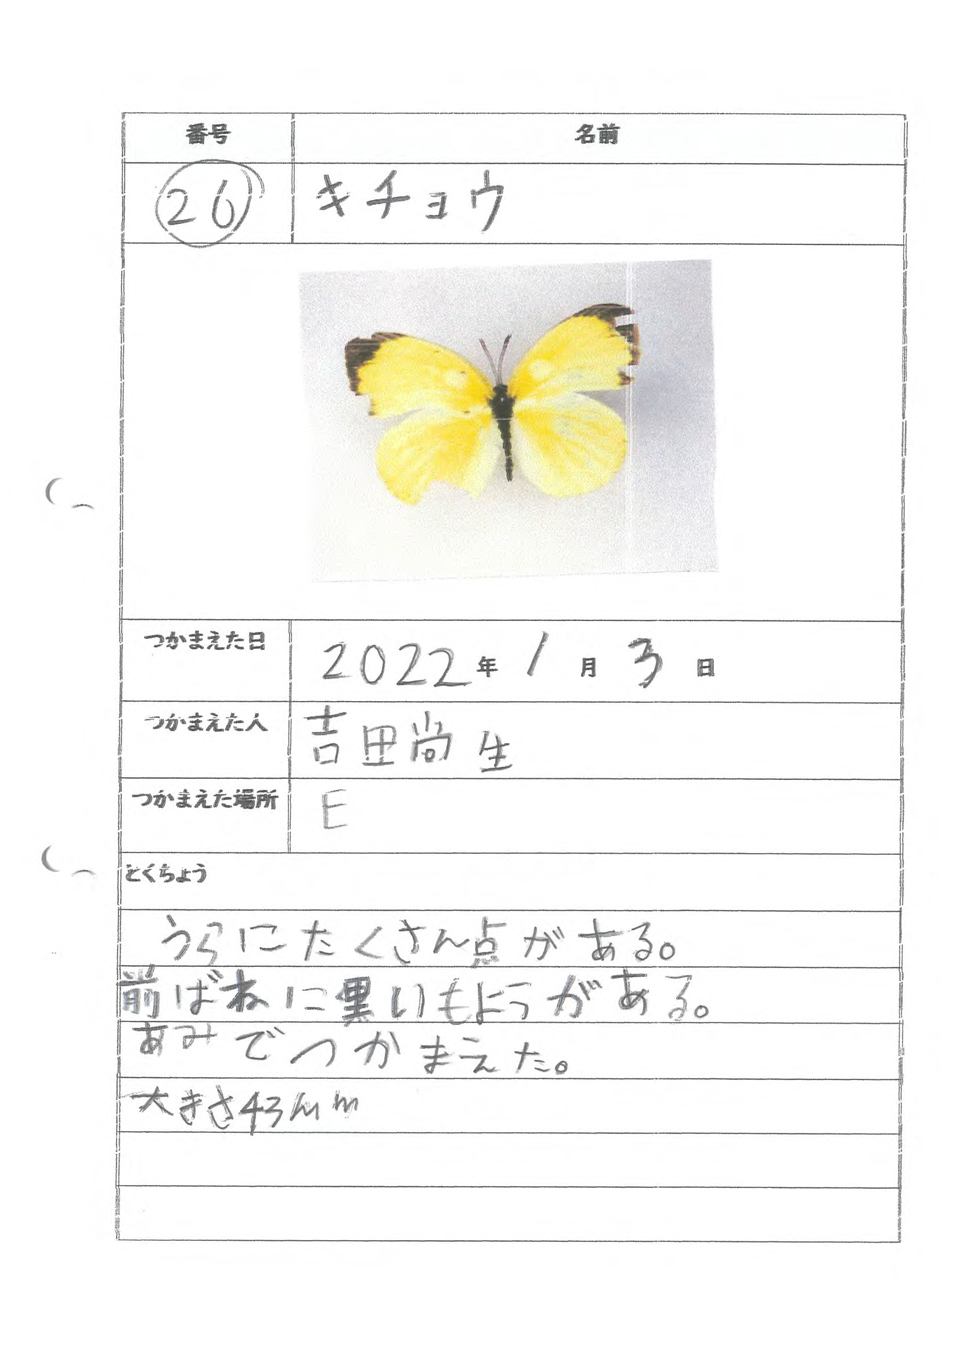 番号 名前
26 キチョウ
つかまえた日 2022年 1月 3日
つかまえた人 吉田尚生
つかまえた場所 E
とくちょう
うらにたくさん点がある。
前ばねに黒いもようがある。
あみでつかまえた。
大きさ43mm